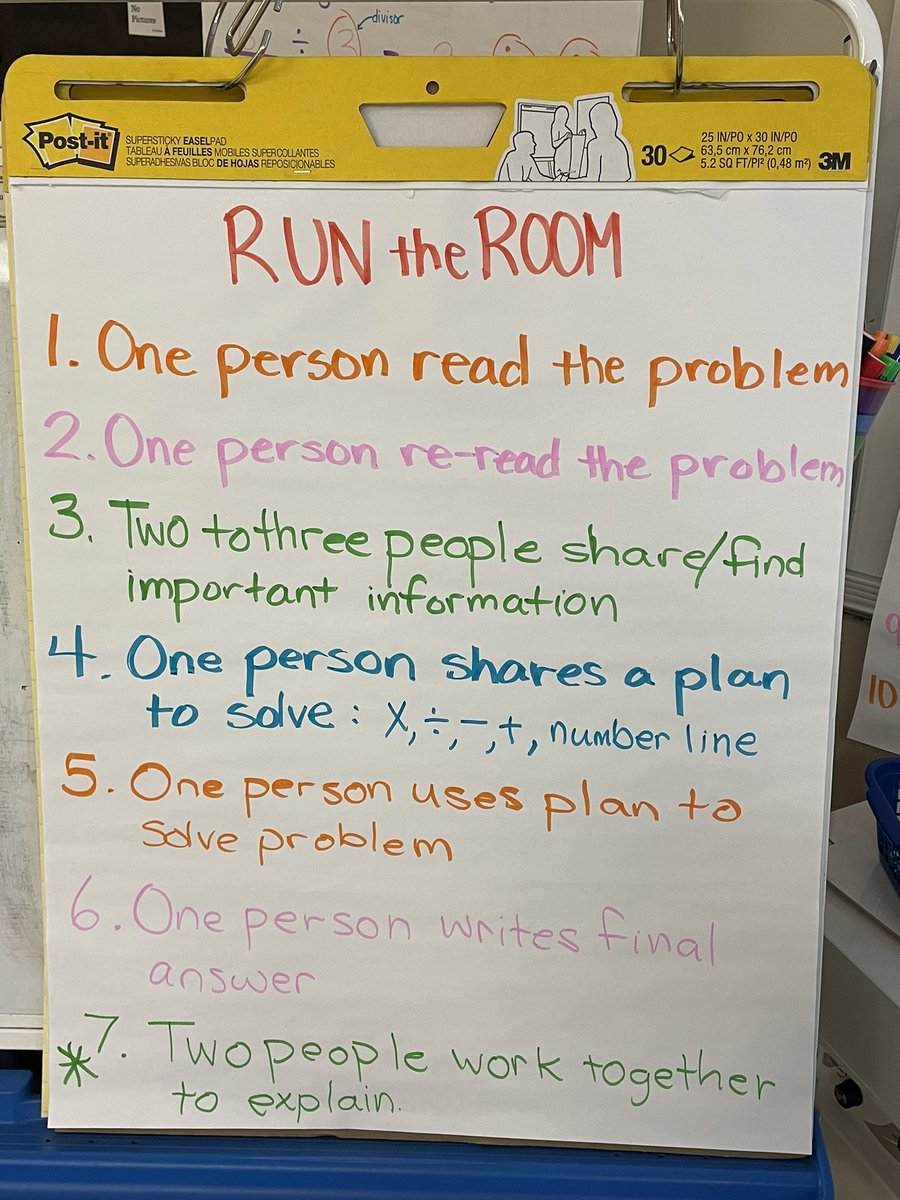 No
Pictures
divisor
÷ 3
Post-it
SUPERSTICKY EASELPAD
TABLEAU À FEUILLES MOBILES SUPERCOLLANTES
SUPERADHESIVAS BLOC DE HOJAS REPOSICIONABLES
30
25 IN/PO x 30 IN/PO
63,5 cm x 76,2 cm
5.2 SQ FT/PI² (0,48 m²)
3M
RUN the ROOM
1. One person read the problem
2. One person re-read the problem
3. Two to three people share/find
important information
4. One person shares a plan
to solve: X, ÷, -, +, number line
5. One person uses plan to
solve problem
6. One person writes final
answer
*7. Two people work together
to explain.
9
10